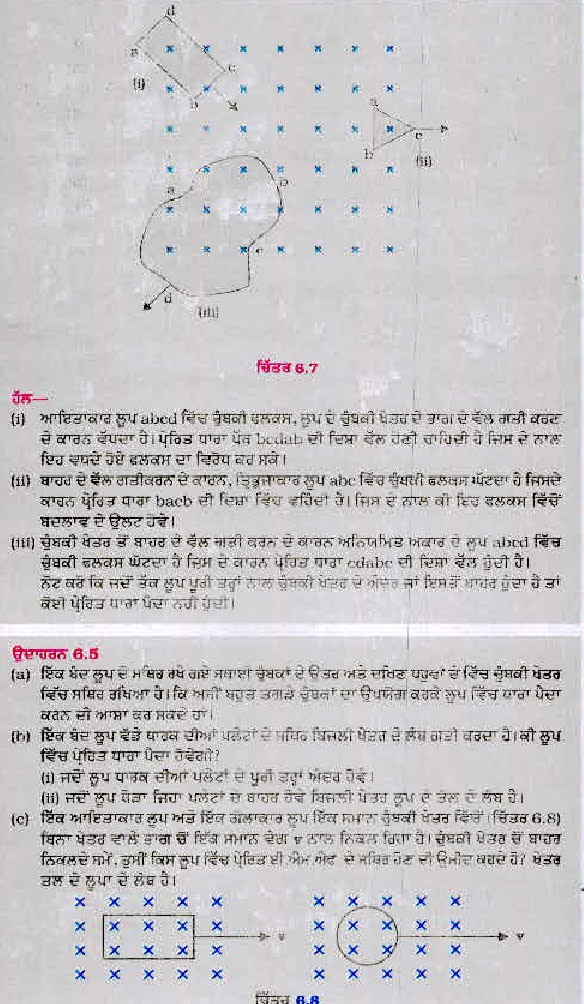 d
a
c
(i)
b
a
c
b
(ii)
a
b
c
d
(iii)
ਚਿੱਤਰ 6.7
ਹੱਲ—
(i) ਆਇਤਾਕਾਰ ਲੂਪ abcd ਵਿੱਚ ਚੁੰਬਕੀ ਫਲਕਸ, ਲੂਪ ਦੇ ਚੁੰਬਕੀ ਖੇਤਰ ਦੇ ਭਾਗ ਦੇ ਵੱਲ ਗਤੀ ਕਰਣ
ਦੇ ਕਾਰਨ ਵੱਧਦਾ ਹੈ। ਪ੍ਰੇਰਿਤ ਧਾਰਾ ਪੱਥ bcdab ਦੀ ਦਿਸ਼ਾ ਵੱਲ ਹੋਣੀ ਚਾਹਿਦੀ ਹੈ ਜਿਸ ਦੇ ਨਾਲ
ਇਹ ਵਧਦੇ ਹੋਏ ਫਲਕਸ ਦਾ ਵਿਰੋਧ ਕਰ ਸਕੇ।
(ii) ਬਾਹਰ ਦੇ ਵੱਲ ਗਤੀਕਰਨ ਦੇ ਕਾਰਨ, ਤ੍ਰਿਭੁਜਾਕਾਰ ਲੂਪ abc ਵਿੱਚ ਚੁੰਬਕੀ ਫਲਕਸ ਘੱਟਦਾ ਹੈ ਜਿਸਦੇ
ਕਾਰਨ ਪ੍ਰੇਰਿਤ ਧਾਰਾ bacb ਦੀ ਦਿਸ਼ਾ ਵਿੱਚ ਵਹਿੰਦੀ ਹੈ। ਜਿਸ ਦੇ ਨਾਲ ਕੀ ਇਹ ਫਲਕਸ ਵਿੱਚੋਂ
ਬਦਲਾਵ ਦੇ ਉਲਟ ਹੋਵੇ।
(iii) ਚੁੰਬਕੀ ਖੇਤਰ ਤੋਂ ਬਾਹਰ ਦੇ ਵੱਲ ਗਤੀ ਕਰਨ ਦੇ ਕਾਰਨ ਅਨਿਯਮਿਤ ਅਕਾਰ ਦੇ ਲੂਪ abcd ਵਿੱਚ
ਚੁੰਬਕੀ ਫਲਕਸ ਘੱਟਦਾ ਹੈ ਜਿਸ ਦੇ ਕਾਰਨ ਪ੍ਰੇਰਿਤ ਧਾਰਾ cdabc ਦੀ ਦਿਸ਼ਾ ਵੱਲ ਹੁੰਦੀ ਹੈ।
ਨੋਟ ਕਰੋ ਕਿ ਜਦੋਂ ਤੱਕ ਲੂਪ ਪੂਰੀ ਤਰ੍ਹਾਂ ਨਾਲ ਚੁੰਬਕੀ ਖੇਤਰ ਦੇ ਅੰਦਰ ਜਾਂ ਇਸਤੋਂ ਬਾਹਰ ਹੁੰਦਾ ਹੈ ਤਾਂ
ਕੋਈ ਪ੍ਰੇਰਿਤ ਧਾਰਾ ਪੈਦਾ ਨਹੀਂ ਹੁੰਦੀ।
ਉਦਾਹਰਨ 6.5
(a) ਇੱਕ ਬੰਦ ਲੂਪ ਦੇ ਸਥਿਰ ਰਖੇ ਗਏ ਸਥਾਈ ਚੁੰਬਕਾਂ ਦੇ ਉਤਰ ਅਤੇ ਦਖਿਣ ਧਰੁਵਾਂ ਦੇ ਵਿੱਚ ਚੁੰਬਕੀ ਖੇਤਰ
ਵਿੱਚ ਸਥਿਰ ਰਖਿਆ ਹੈ। ਕਿ ਅਸੀਂ ਬਹੁਤ ਤਗੜੇ ਚੁੰਬਕਾਂ ਦਾ ਉਪਯੋਗ ਕਰਕੇ ਲੂਪ ਵਿੱਚ ਧਾਰਾ ਪੈਦਾ
ਕਰਨ ਦੀ ਆਸ਼ਾ ਕਰ ਸਕਦੇ ਹਾਂ।
(b) ਇੱਕ ਬੰਦ ਲੂਪ ਵੱਡੇ ਧਾਰਕ ਦੀਆਂ ਪਲੇਟਾਂ ਦੇ ਸਥਿਰ ਬਿਜਲੀ ਖੇਤਰ ਦੇ ਲੰਬ ਗਤੀ ਕਰਦਾ ਹੈ। ਕੀ ਲੂਪ
ਵਿੱਚ ਪ੍ਰੇਰਿਤ ਧਾਰਾ ਪੈਦਾ ਹੋਵੇਗੀ?
(i) ਜਦੋਂ ਲੂਪ ਧਾਰਕ ਦੀਆਂ ਪਲੇਟਾਂ ਦੇ ਪੂਰੀ ਤਰ੍ਹਾਂ ਅੰਦਰ ਹੋਵੇ।
(ii) ਜਦੋਂ ਲੂਪ ਥੋੜਾ ਜਿਹਾ ਪਲੇਟਾਂ ਦੇ ਬਾਹਰ ਹੋਵੇ ਬਿਜਲੀ ਖੇਤਰ ਲੂਪ ਦੇ ਤਲ ਦੇ ਲੰਬ ਹੈ।
(c) ਇੱਕ ਆਇਤਾਕਾਰ ਲੂਪ ਅਤੇ ਇੱਕ ਗੋਲਾਕਾਰ ਲੂਪ ਇੱਕ ਸਮਾਨ ਚੁੰਬਕੀ ਖੇਤਰ ਵਿੱਚੋਂ (ਚਿੱਤਰ 6.8)
ਬਿਨਾ ਖੇਤਰ ਵਾਲੇ ਭਾਗ ਚੋਂ ਇੱਕ ਸਮਾਨ ਵੇਗ v ਨਾਲ ਨਿਕਲ ਰਿਹਾ ਹੈ। ਚੁੰਬਕੀ ਖੇਤਰ ਚੋਂ ਬਾਹਰ
ਨਿਕਲਦੇ ਸਮੇਂ, ਤੁਸੀਂ ਕਿਸ ਲੂਪ ਵਿੱਚ ਪ੍ਰੇਰਿਤ ਈ.ਐਮ.ਐਫ ਦੇ ਸਥਿਰ ਹੋਣ ਦੀ ਉਮੀਦ ਕਰਦੇ ਹੋ? ਖੇਤਰ
ਤਲ ਦੇ ਲੂਪਾਂ ਦੇ ਲੰਬ ਹੈ।
v
v
ਚਿੱਤਰ 6.8